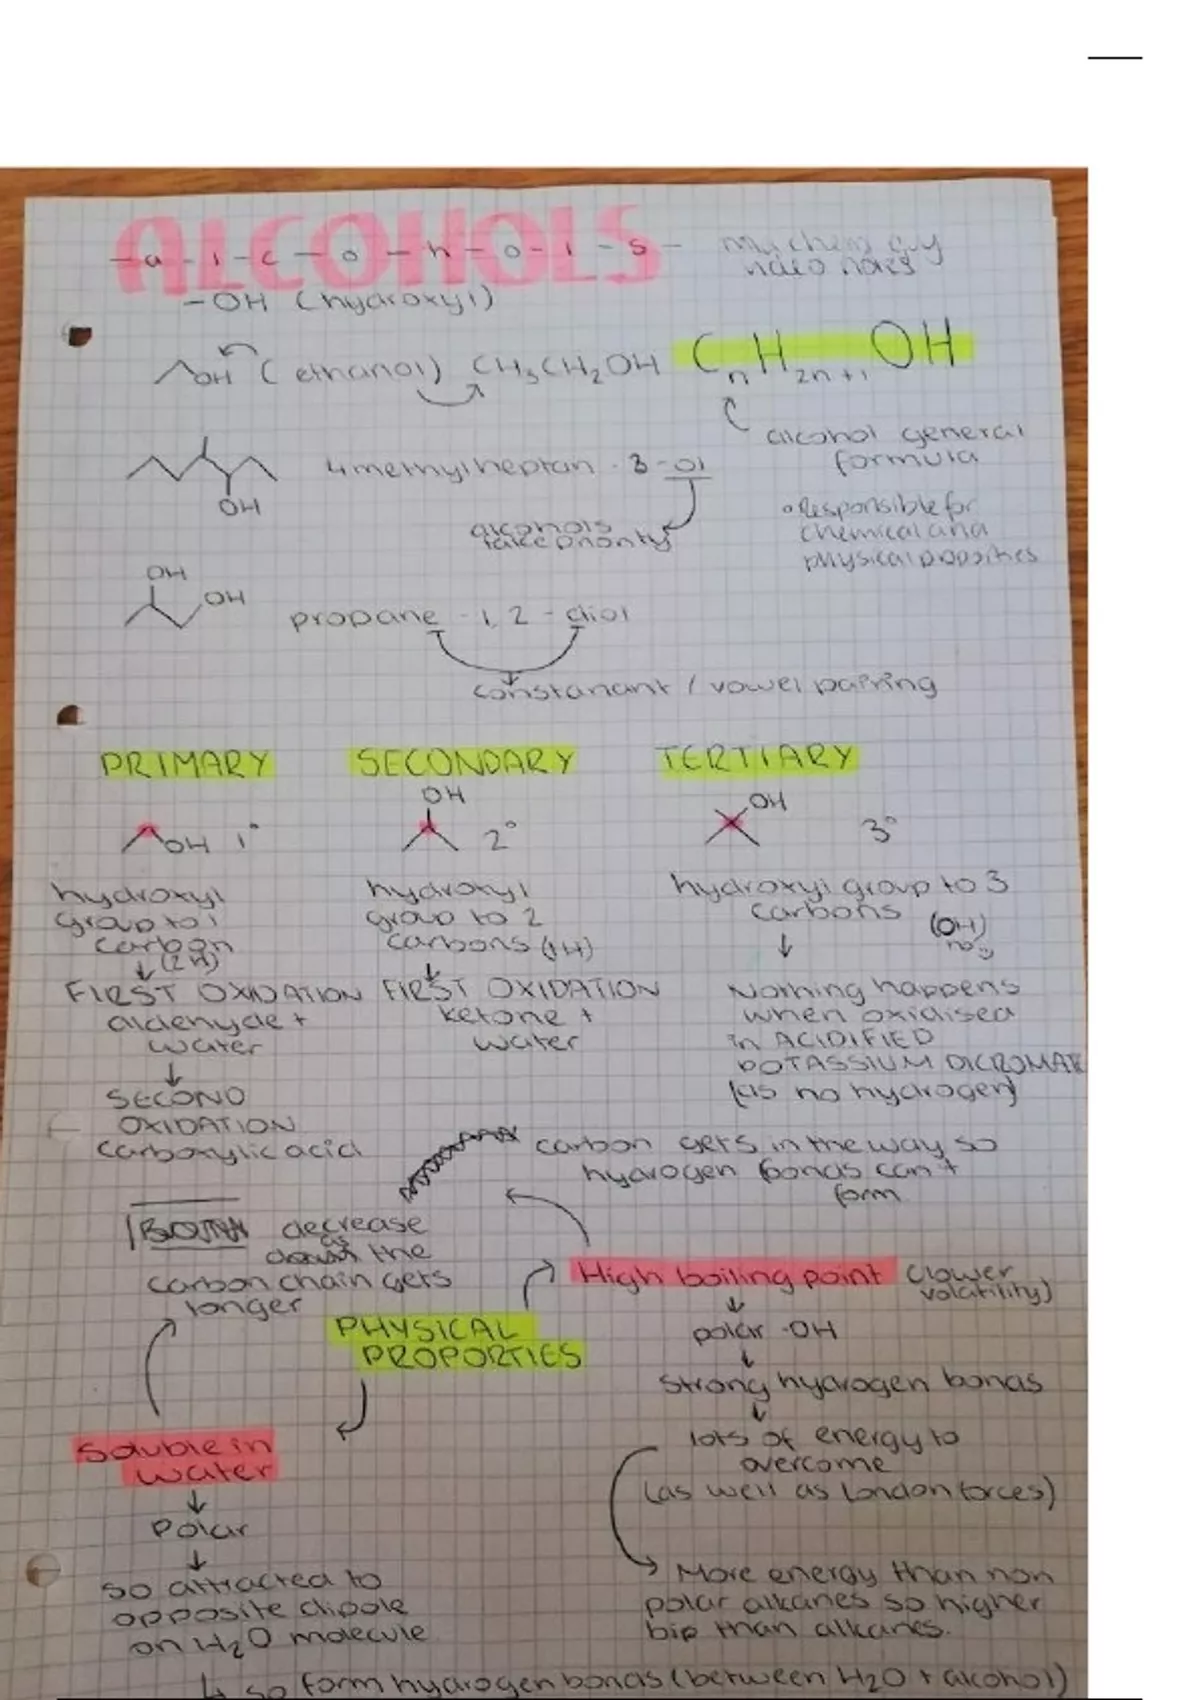 ALCOHOLS
-a-l-c-o-h-o-l-s-
video notes
-OH (hydroxyl)
OH (ethanol) CH3CH2OH CnH2n+1OH
alcohol general
formula
4methylheptan-3-ol
OH
alcohols
take priority
•Responsible for
chemical and
physical
OH
OH
propane-1,2-diol
constanant / vowel pairing
PRIMARY SECONDARY TERTIARY
OH 1°
OH
2°
OH
3°
hydroxyl
group to 1
carbon
(2H)
↓
FIRST OXIDATION
aldehyde +
water
↓
SECOND
OXIDATION
carboxylic acid
hydroxyl
group to 2
carbons (1H)
↓
FIRST OXIDATION
ketone +
water
hydroxyl group to 3
carbons
(OH)
no
↓
Nothing happens
when oxidised
in ACIDIFIED
POTASSIUM DICROMATE
(as no hydrogen)
carbon gets in the way so
hydrogen bonds can't
form
BOTH decrease
as
the
carbon chain gets
longer
PHYSICAL
PROPORTIES
High boiling point (lower
volatility)
↓
polar -OH
↓
strong hydrogen bonds
↓
lots of energy to
overcome
(as well as London forces)
More energy than non
polar alkanes so higher
bip than alkanes.
Soluble in
water
↓
Polar
↓
so attracted to
opposite dipole
on H2O molecule
↳ so form hydrogen bonds (between H2O + alcohol)